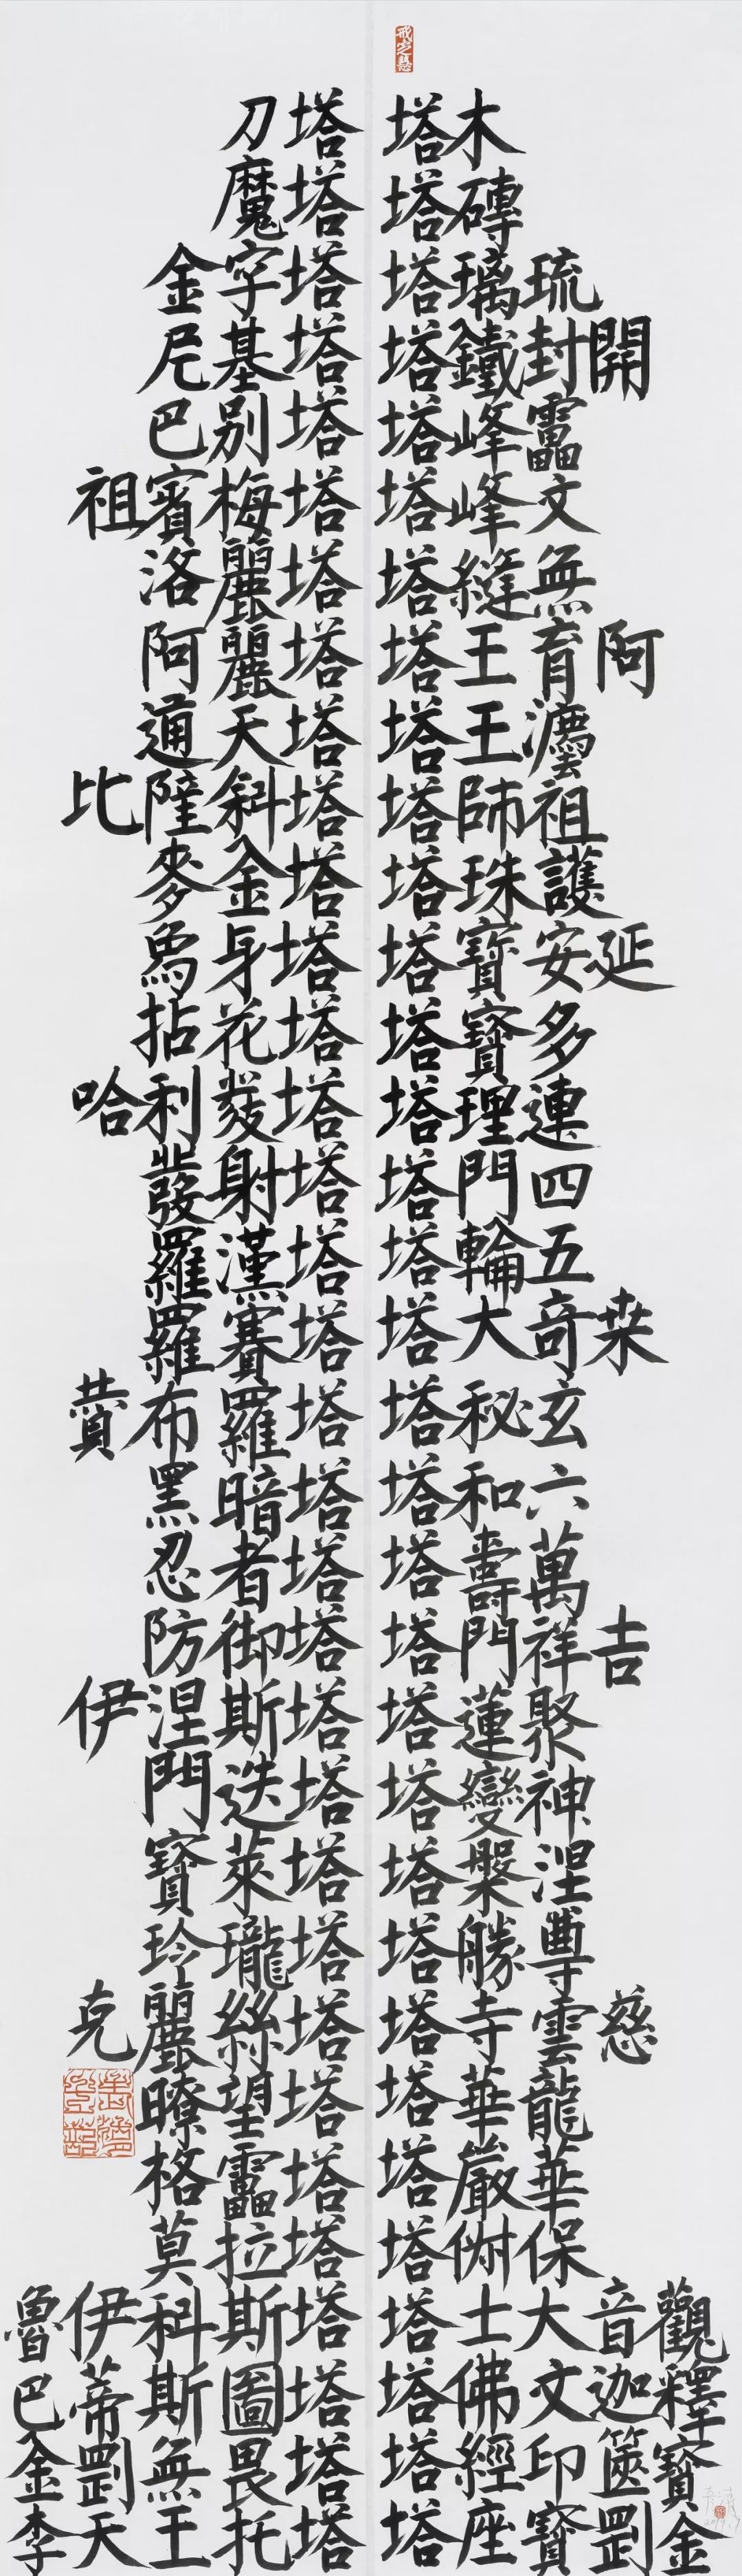 木塔
磚塔
琉璃塔
開封鐵塔
靁峰塔
文峰塔
無縫塔
阿育王塔
灋王塔
祖師塔
護珠塔
延安寶塔
多寶塔
連理塔
四門塔
五輪塔
桒奇大塔
玄秘塔
六和塔
萬壽塔
吉祥門塔
聚蓮塔
神變塔
涅槃塔
尊勝塔
慈雲寺塔
龍華塔
華嚴塔
保俶塔
觀音大士塔
釋迦文佛塔
寶篋印經塔
金剛寶座塔
刀塔
魔塔
金字塔
尼基塔
巴別塔
祖賓梅塔
洛麗塔
阿麗塔
通天塔
比薩斜塔
麥金塔
身塔
拈花塔
哈利發塔
發射塔
羅漢塔
羅賽塔
贊布羅塔
黑暗塔
忍者塔
防御塔
伊涅斯塔
門迭塔
寶萊塔
玲瓏塔
克麗絲塔
瞭望塔
格靁塔
莫拉塔
魯伊科斯塔
巴蒂斯圖塔
金剛無畏塔
李天王托塔